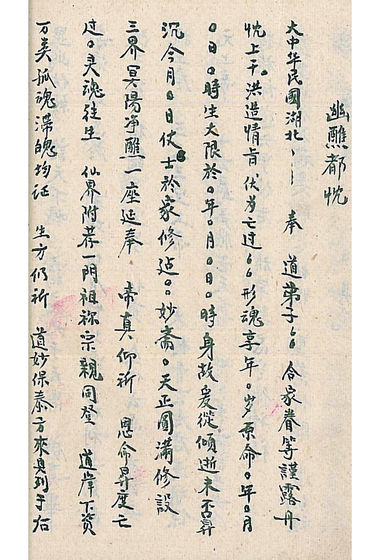 幽醮都忱
大中华民國湖北〻〻奉 道弟子〻〻合家眷等謹露丹
忱上干。洪造情旨伏为亡过〻〻形魂享年。岁原命。年。月
。日。時生大限於。年。月。日。時身故爰從傾逝未否昇
沉今月。日仗士於家修迠。。妙斋。天正圓满修設
三界冥陽净醮一座延奉 帝真仰祈 恩命昇度亡
过。灵魂往生 仙界附荐一門祖祢宗親同登 道岸下資
万类孤魂滞魄均证 生方仍祈 道妙保泰方來具列于右